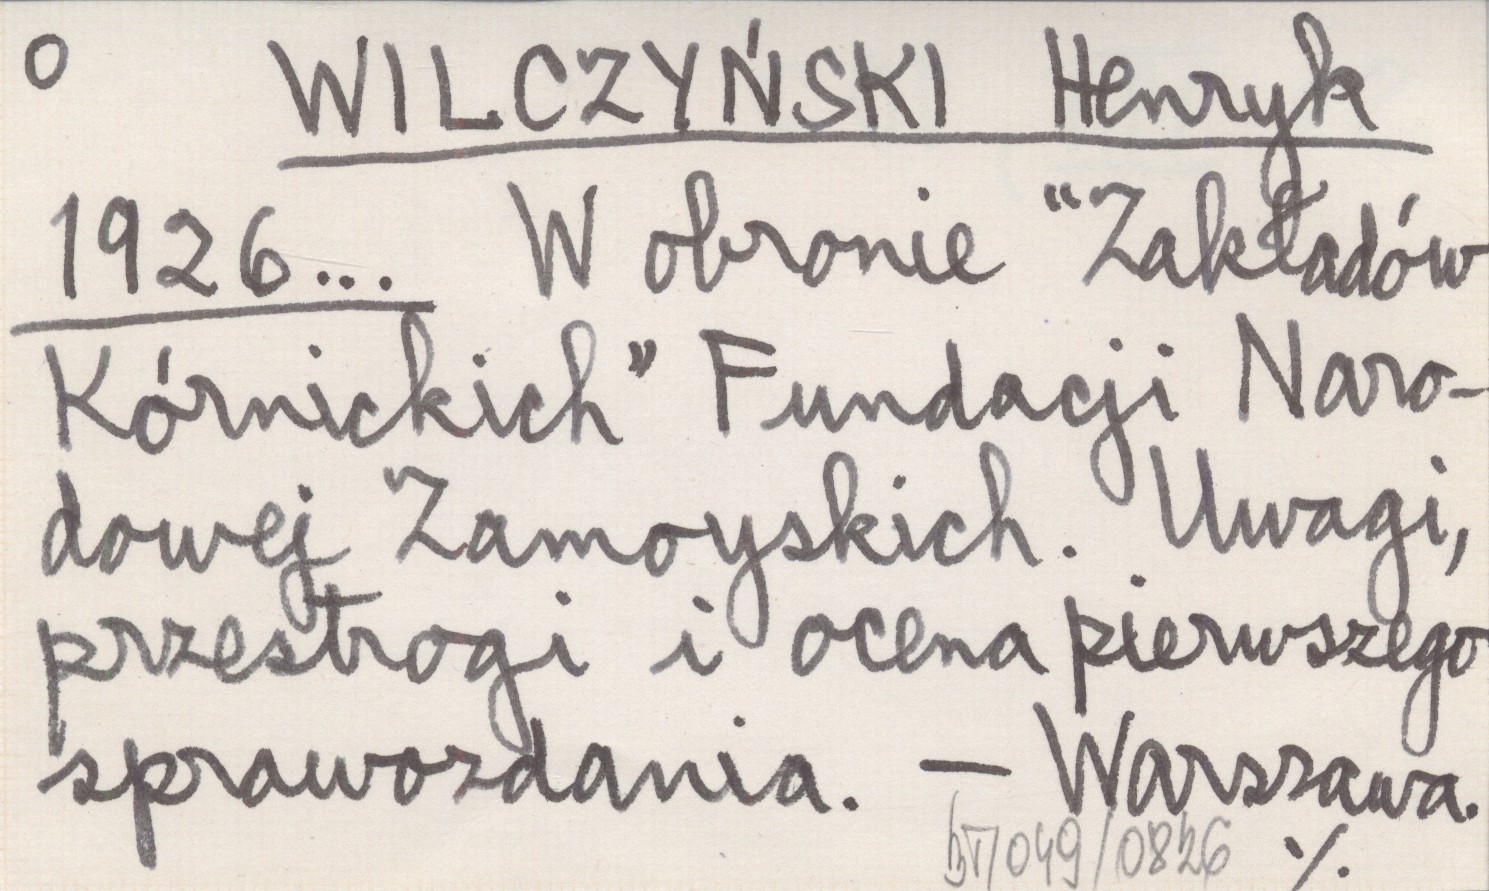 O WILCZYŃSKI Henryk
1926... W obronie "Zakładów
Kórnickich" Fundacji Naro-
dowej Zamoyskich. Uwagi,
przestrogi i ocena pierwszego
sprawozdania. — Warszawa.
049/0826 ./.